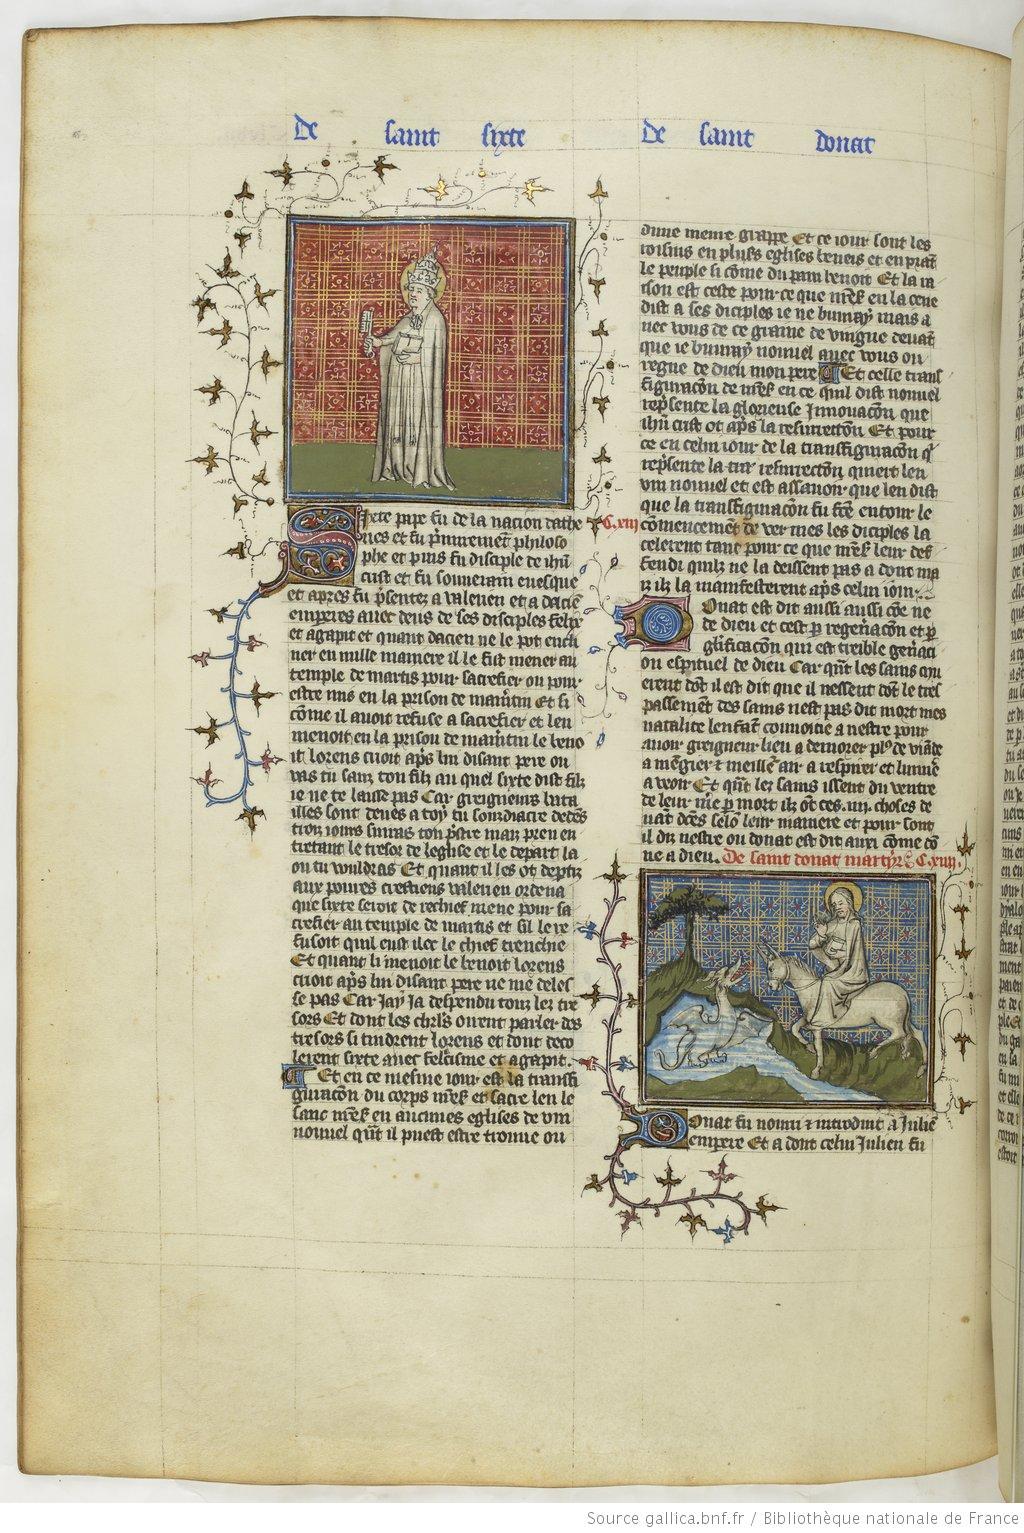 De saint sixte
De saint donat
Sixte pape fu de la nacion dathe
nes et fu p̃mierement philoso
phe et puis fu disciple de ihũ
crist et fu souuerain euesque
et apres fu p̃sentez a valerien et a dacien
emperes auec deus de ses disciples felix
et agapit et quant dacien ne le pot encli
ner en nulle maniere il le fist mener au
temple de martis pour sacrefier ou pour
estre mis en la prison de mam̃tin Et si
cõme il auoit refuse a sacrefier et len
menoit en la prison de mam̃tin le beno
it lorens crioit ap̃s lui disant pere ou
vas tu sanz ton filz au quel sixte dist filz
ie ne te laisse pas Car greigneurs bata
illes sont deues a toy tu soudiacre dedẽs
trois iours suiras ton p̃stre mais pren en
tretant le tresor de leglise et le depart la
ou tu vouldras Et quant il les ot deptiz
aux poures crestiens valerien ordena
que sixte seroit de rechief mene pour sa
crefier au temple de martis et sil le re
fusoit quil eust ilec le chief trenchie
Et quant li menoit le benoit lorens
crioit ap̃s lui disant pere ne me deles
se pas Car jay ja despendu touz lez tre
sors Et dont les chrl̃s oirent parler des
tresors si tindrent lorens et dont deco
lerent sixte auec felicisme et agapit.
Et en ce mesme iour est la transfi
guracõn du corps nr̃e et sacre len le
sanc nr̃e en aucunes eglises de vin
nouuel qũt il puest estre trouue ou
C.xiii
dune meme grappe Et ce iour sont les
roisins en plus̃s eglises beneis et en prãt
le peuple si cõme du pain benoit Et la ra
ison est ceste pour ce que nr̃e en la cene
dist a ses diciples ie ne buuray mais a
uec vous de ce graine de vingne deuãt
que ie buuray nouuel auec vous ou
regne de dieu mon pere Et celle trans
figuracõn de nr̃e en ce quil dist nouuel
rep̃sente la glorieuse Innouacõn que
ihũ crist ot ap̃s la resurrectõn Et pour
ce en celui iour de la transfiguracõn q̃
rep̃sente la resurrectõn quiert len
vin nouuel et est assauoir que len dist
que la transfiguracõn fu fc̃e entour le
cõmencement de ver mes les diciples la
celerent tant pour ce que nr̃e leur def
fendi quilz ne la deissent pas a dont ma
iz ilz la manifesterent ap̃s celui iour
Donat est dit aussi aussi cõe ne
de dieu et cest p regeñacõn et p
glificacõn qui est treible geñaci
on espirituel de dieu Car qũt les sains mu
erent dõt il est dit que il nessent dõt le tres
passemẽt des sains nest pas dit mort mes
natalite lenfãt conuoitie a nestre pour
auoir greigneur lieu a demorer pl9 de viãde
a mẽgier et meillẽ air a respirer et lumiẽ
a veoir Et qũt lez sains issent du ventre
de leur m̃e p mort ilz õt ces .iiii. choses de
uãt dc̃es selõ leur maniere et pour sont
il diz nestre ou donat est dit auxi cõme dõ
ne a dieu. De saint donat martyr C.xiiii.
Donat fu nourri et introduit a Julie
empere Et a dont celui Julien fu
Source gallica.bnf.fr / Bibliothèque nationale de France